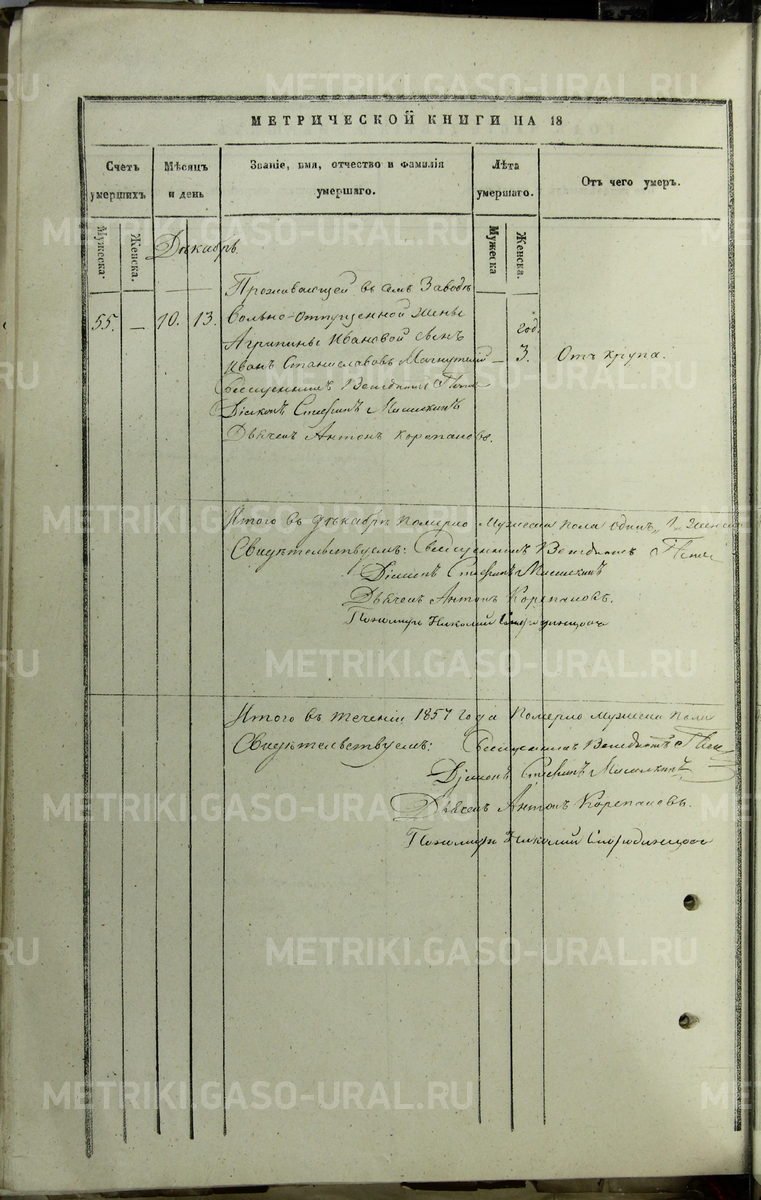 МЕТРИЧЕСКОЙ КНИГИ НА 18
Счетъ умершихъ
Мужеска.
Женска.
Мѣсяцъ и день
Званіе, имя, отчество и фамилія умершаго.
Лѣта умершаго.
Мужеска
Женска.
Отъ чего умеръ.
Декабрь
55. — 10. 13.
Проживающей въ семъ Заводѣ
Вольно-отпущенной жены
Агрипины Ивановой сынъ
Иванъ Станиславовъ
год.
— 3.
Отъ крупа.
Священникъ Венедиктъ
Діаконъ Стефанъ
Дьячекъ Антонъ Корепановъ.
Итого въ декабрѣ померло мужеска пола одинъ, 1
Свидѣтельствуемъ: Священникъ Венедиктъ
Діаконъ Стефанъ
Дьячекъ Антонъ Корепановъ.
Пономарь Николай
Итого въ теченіи 1857 года померло мужеска пола
Свидѣтельствуемъ: Священникъ Венедиктъ
Діаконъ Стефанъ
Дьячекъ Антонъ Корепановъ.
Пономарь Николай
METRIKI.GASO-URAL.RU